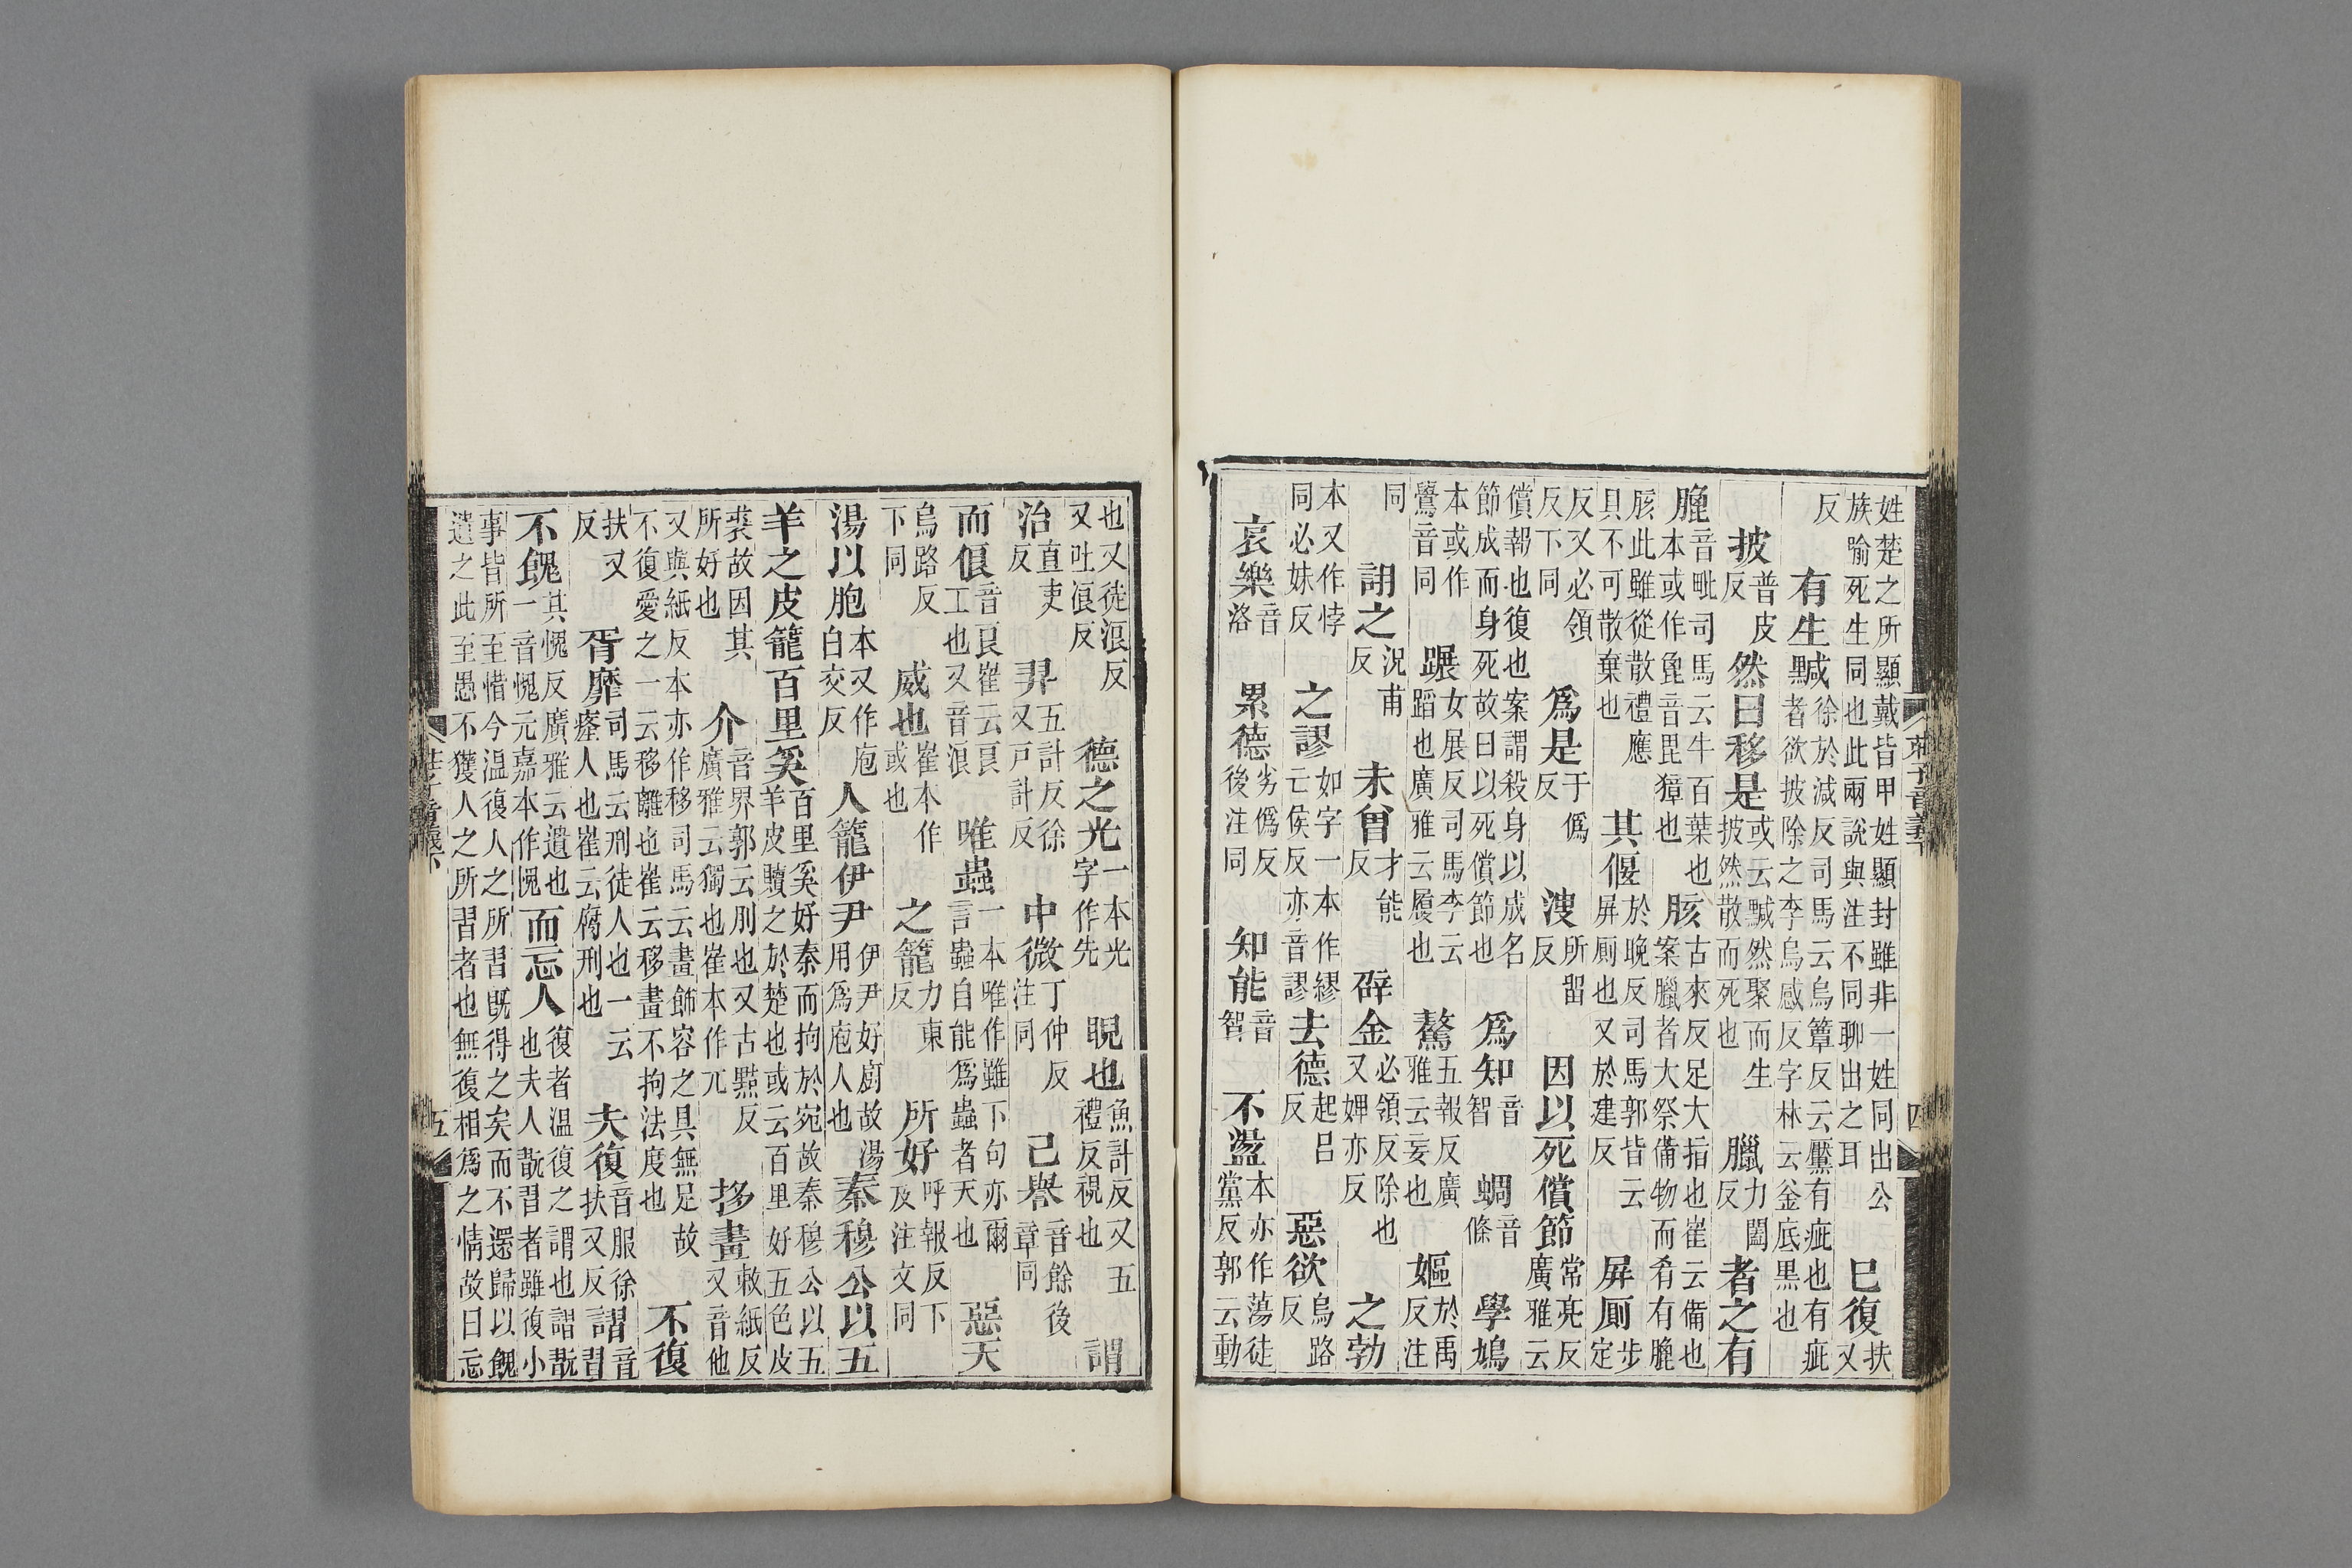 姓楚之所顯戴皆甲姓顯封雖非一姓同出公族喻死生同也此兩說與注不同聊出之耳 巳復扶又
反 有生黬徐於減反司馬云烏簟反云黶有疵也有疵者欲披除之李烏感反字林云釜底黑也
披普皮反 然曰移是或云黬然聚而生披然散而死也 臘力闔反 者之有
膍音毗司馬云牛百葉也本或作㲋音毘獐也 胲古來反足大指也崔云備也案臘者大祭備物而肴有膍
胲此雖從散禮應具不可散棄也 其偃於晚反司馬郭皆云屏廁也又於建反 屏廁步定
反又必領反下同 爲是于僞反 溲所留反 因以死償節常亮反廣雅云
償報也復也案謂殺身以成名節成而身死故曰以死償節也 爲知音智 蜩音條 學鳩
本或作鷽音同 蹍女展反司馬李云蹈也廣雅云履也 驁五報反廣雅云妄也 嫗於禹反注
同 詡之況甫反 未曾才能反 辟金必領反除也又婢亦反 之勃
本又作悖同必妹反 之謬如字一本作繆亡侯反亦音謬 去德起呂反 惡欲烏路反
哀樂音洛 累德劣僞反後注同 知能音智 不盪本亦作蕩徒黨反郭云動
莊子音義下 四
也又徒浪反又吐浪反 德之光一本光字作先 睨也魚計反又五禮反視也 謂
治直吏反 羿五計反徐又戶計反 中微丁仲反注同 己譽音餘後章同
而俍音良崔云良工也又音浪 唯蟲一本唯作雖下句亦爾言蟲自能爲蟲者天也 惡天
烏路反下同 威也崔本作或也 之籠力東反 所好呼報反下及注文同
湯以胞本又作庖白交反 人籠伊尹伊尹好廚故湯用爲庖人也 秦穆公以五
羊之皮籠百里奚百里奚好秦而拘於宛故秦穆公以五羊皮贖之於楚也或云百里好五色皮
裘故因其所好也 介音界郭云刖也又古黠反廣雅云獨也崔本作兀 拸畫敕紙反又音他
又與紙反本亦作移司馬云畫飾容之具無足故不復愛之一云移離也崔云移畫不拘法度也 不復
扶又反 胥靡司馬云刑徒人也一云癃人也崔云腐刑也 夫復音服徐扶又反 謵音習
不餽其愧反廣雅云遺也一音愧元嘉本作愧 而忘人復者温復之謂也謵翫也夫人翫習者雖復小
事皆所至惜今温復人之所習旣得之矣而不還歸以餽遺之此至愚不獲人之所習者也無復相爲之情故曰忘
莊子音義下 五